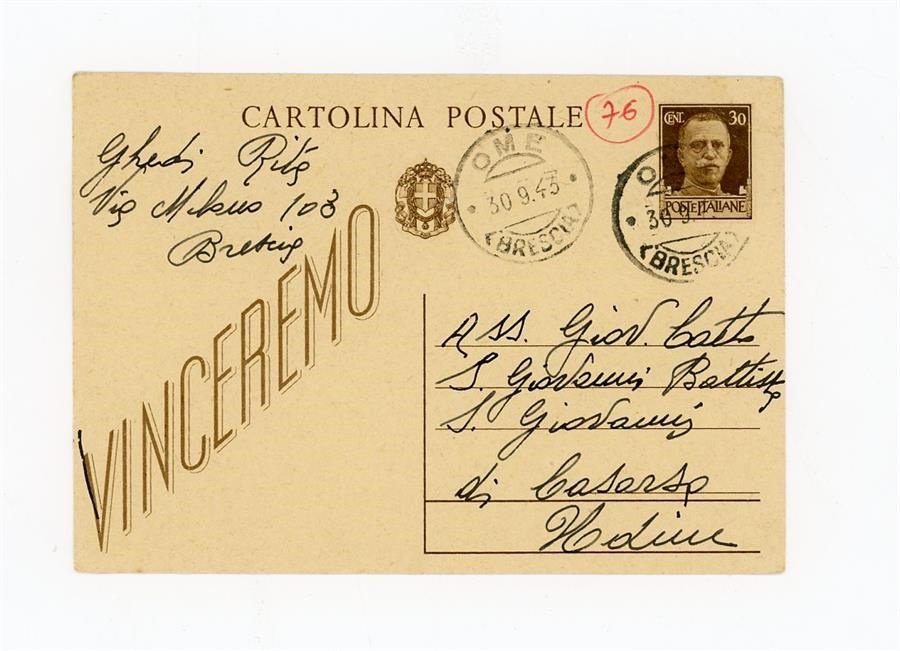 CARTOLINA POSTALE
76
CENT. 30
POSTE ITALIANE
Ghedi Rita
Via Milano 103
Brescia
OME
30.9.43
(BRESCIA)
OME
30.9
(BRESCIA)
VINCEREMO
Ass. Giov. Catt.
S. Giovanni Battista
S. Giovanni
di Casarsa
Udine